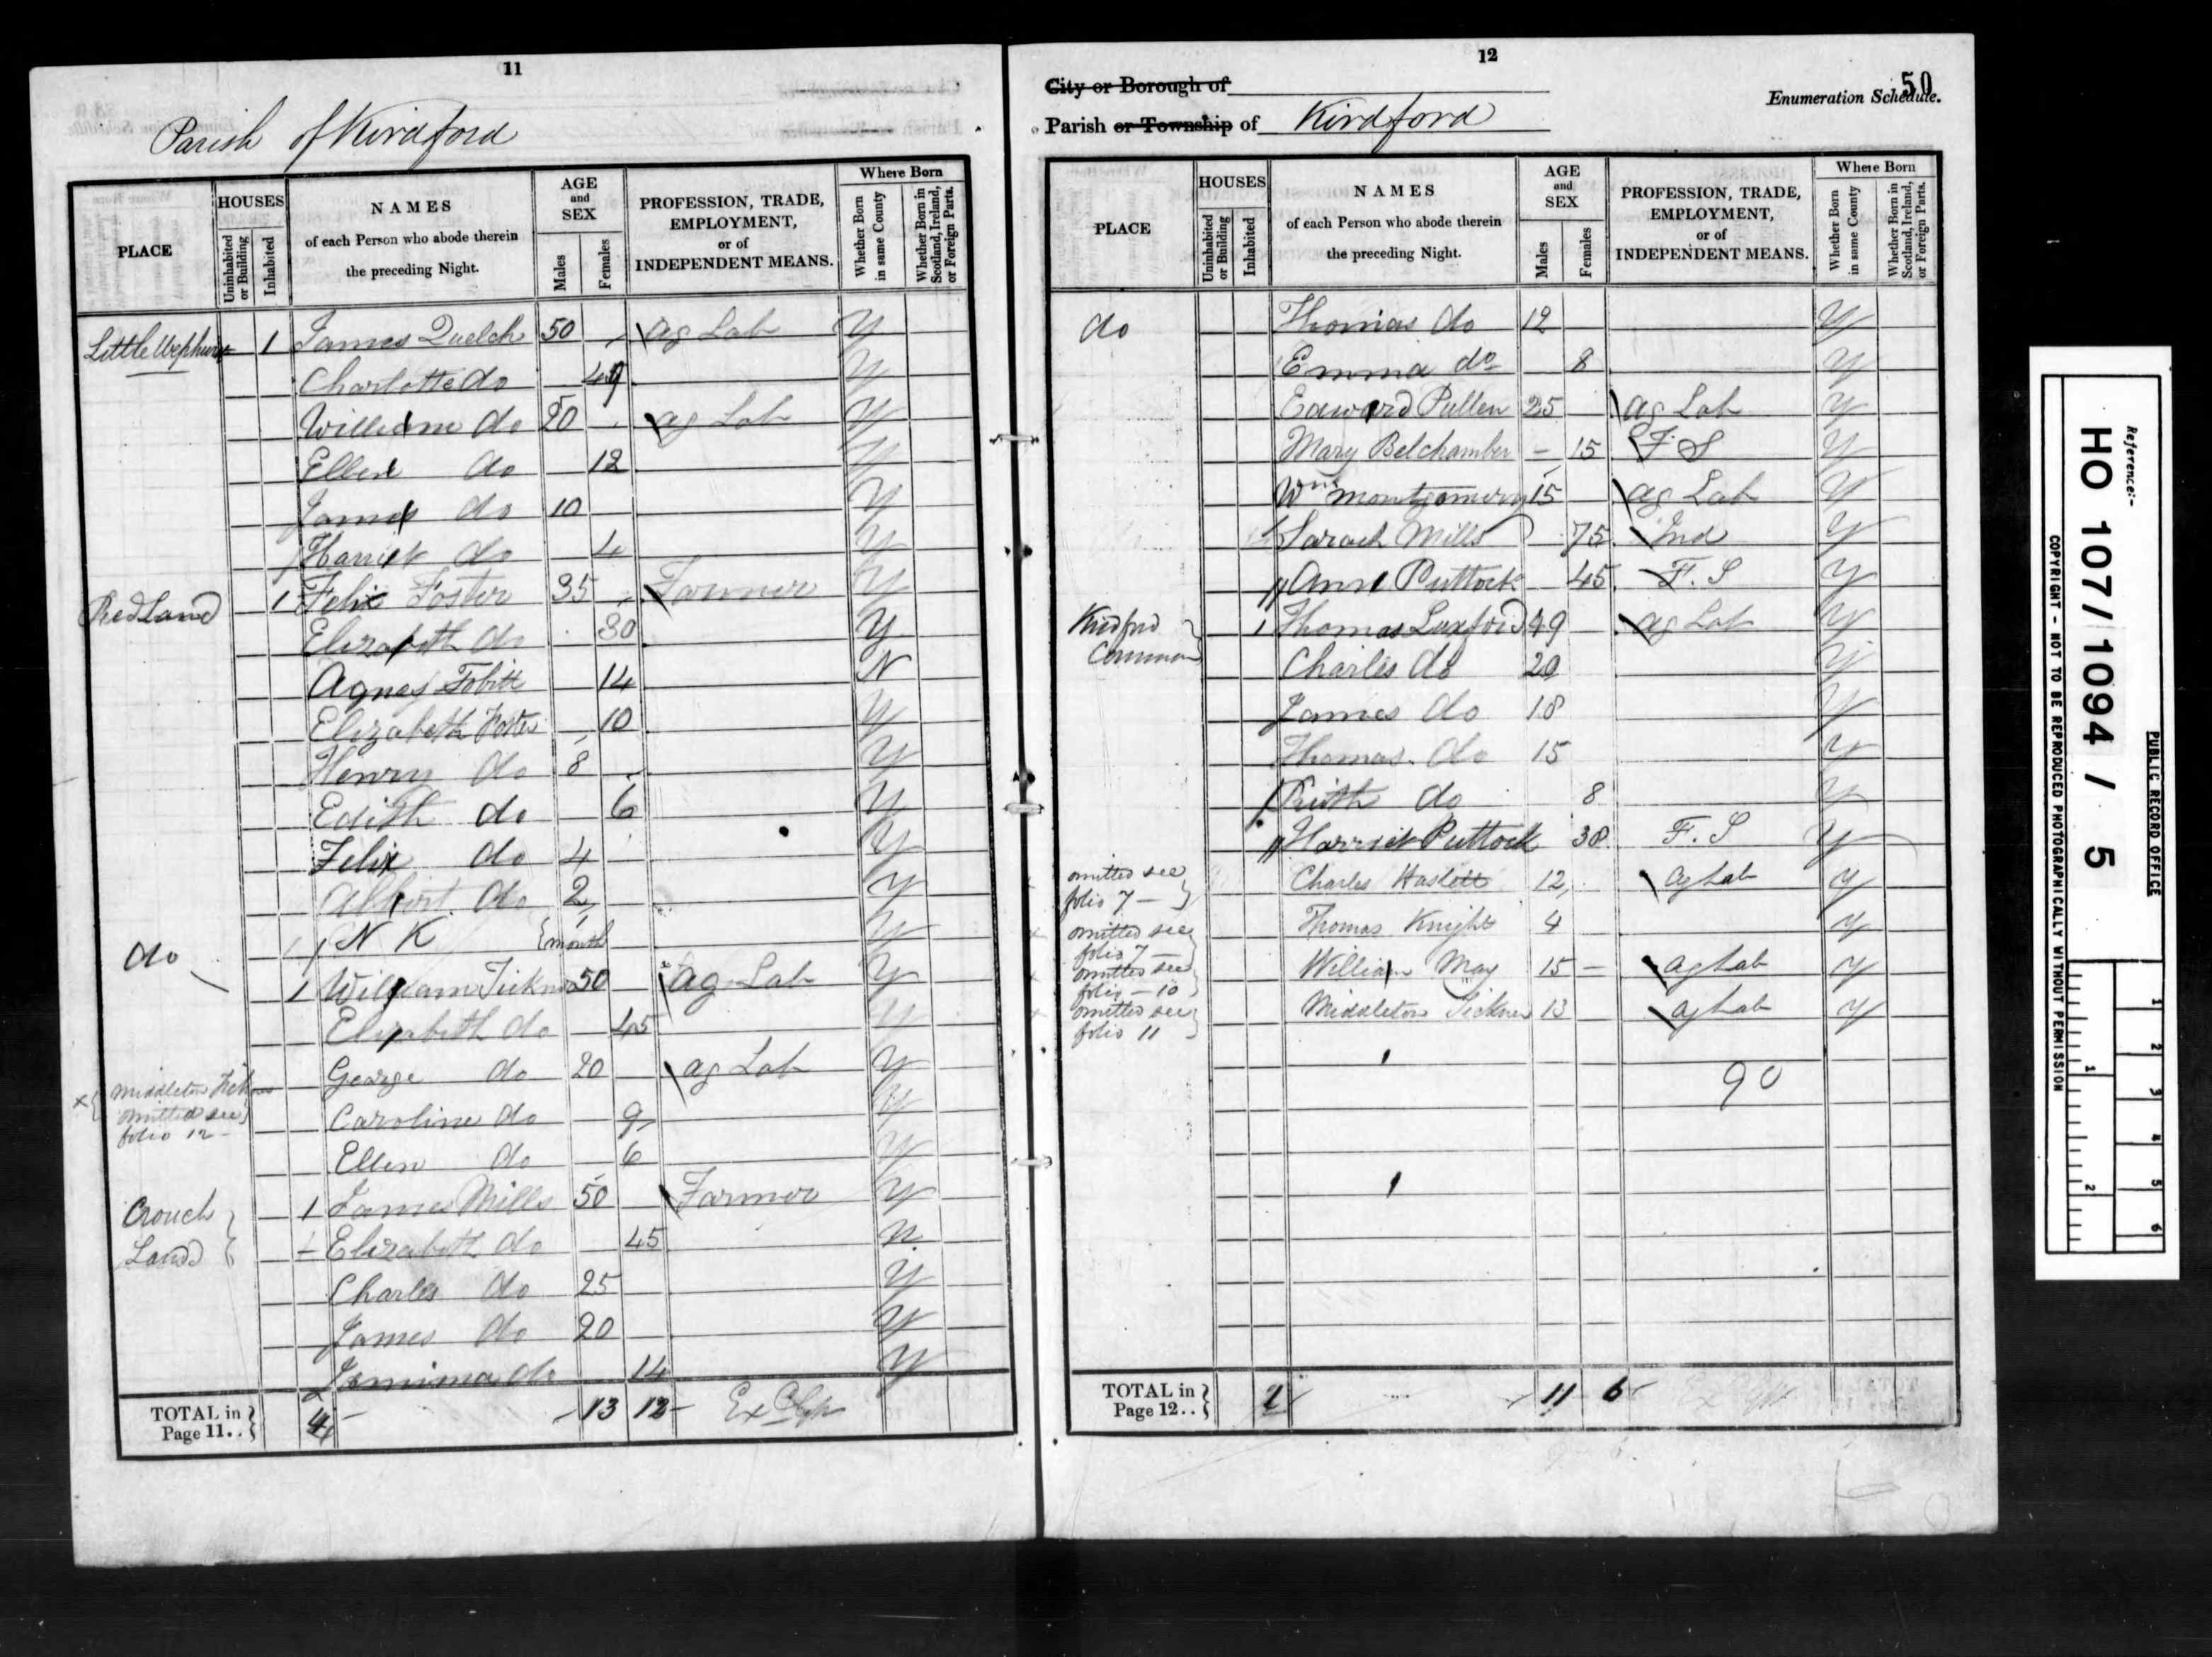 11
Parish of Kirdford
PLACE
HOUSES
Uninhabited or Building
Inhabited
NAMES
of each Person who abode therein
the preceding Night.
AGE
and
SEX
Males
Females
PROFESSION, TRADE,
EMPLOYMENT,
or of
INDEPENDENT MEANS.
Where Born
Whether Born in same County
Whether Born in Scotland, Ireland, or Foreign Parts.
Little Wephurst 1 James Quelch 50 Ag Lab Y
Charlotte do 49 Y
William do 20 Ag Lab Y
Ellen do 12 Y
James do 10 Y
Harriet do 4 Y
Redland 1 Felix Foster 35 Farmer Y
Elizabeth do 30 Y
Agnes 14 N
Elizabeth Foster 10 Y
Henry do 8 Y
Edith do 6 Y
Felix do 4 Y
Albert do 2 Y
N K month Y
do 1 William Tickner 50 Ag Lab Y
Elizabeth do 45 Y
George do 20 Ag Lab Y
Middleton Tickner
omitted see
folio 12
Caroline do 9 Y
Ellen do 6 Y
Crouch Land 1 James Mills 50 Farmer Y
Elizabeth do 45 N
Charles do 25 Y
James do 20 Y
Jemima do 14 Y
TOTAL in Page 11.. 4 13 12
12
City or Borough of
50
Enumeration Schedule.
Parish or Township of Kirdford
PLACE
HOUSES
Uninhabited or Building
Inhabited
NAMES
of each Person who abode therein
the preceding Night.
AGE
and
SEX
Males
Females
PROFESSION, TRADE,
EMPLOYMENT,
or of
INDEPENDENT MEANS.
Where Born
Whether Born in same County
Whether Born in Scotland, Ireland, or Foreign Parts.
do Thomas do 12 Y
Emma do 8 Y
Edward Pullen 25 Ag Lab Y
Mary Belchamber – 15 F S Y
Wm Montgomery 15 Ag Lab Y
Sarah Mills 75 Ind Y
Ann Puttock 45 F. S Y
Kirdford Common 1 Thomas Luxford 49 Ag Lab Y
Charles do 20 Y
James do 18 Y
Thomas do 15 Y
Ruth do 8 Y
Harriet Puttock 38 F. S Y
omitted see folio 7 Charles Haslett 12 Ag Lab Y
omitted see folio 7 Thomas Knight 4 Y
omitted see folio 10 William May 15 – Ag Lab Y
omitted see folio 11 Middleton Tickner 13 Ag Lab Y
90
TOTAL in Page 12.. 1 11 6
Reference:-
HO 107/1094 / 5
PUBLIC RECORD OFFICE
COPYRIGHT - NOT TO BE REPRODUCED PHOTOGRAPHICALLY WITHOUT PERMISSION
1 2
1 2 3 4 5 6